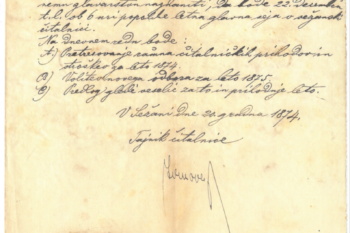 nemu glavarstvu naznaniti, da bode 22. decembra
t. l. ob 6 uri popoldne letna glavna seja v sežanski
čitalnici.
Na dnevnem redu bode:
1) Pretresovanje računa čitalničkih prihodov in
stroškov za leto 1874.
2) Volitev novega odbora za leto 1875.
3) Predlog glede veselic za to in prihodnje leto.
V Sežani dne 20. grudna 1874.
Tajnik čitalnice